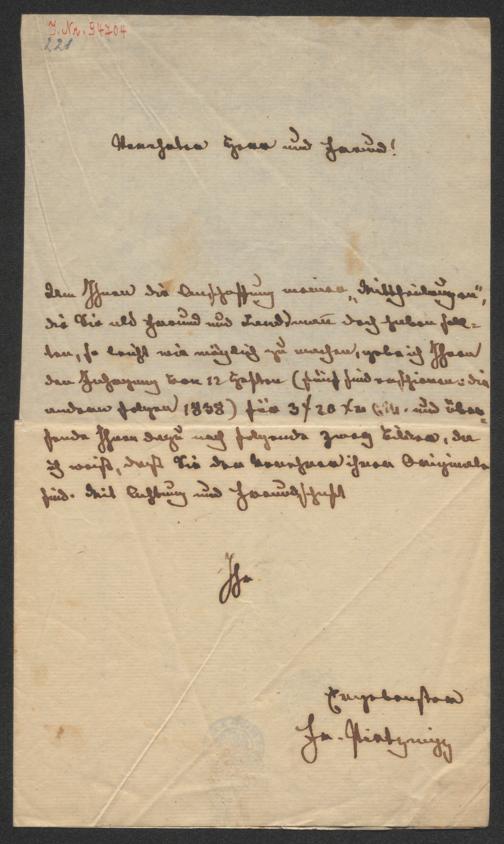 I. Nr. 94704
221
Verehrter Herr und Freund!
Um Ihnen die Anschaffung meiner „Mittheilungen“,
die Sie als Freund und Landsmann doch haben soll-
ten, so leicht wie möglich zu machen, gebe ich Ihnen
den Jahrgang von 12 Heften (fünf sind erschienen: die
andern folgen 1838) für 3 f 20 x und über-
sende Ihnen dazu noch folgende zwey Bilder, da
ich weiß, daß Sie der Verehrer ihrer Originale
sind. Mit Achtung und Freundschaft
Ihr
Ergebenster
Fr. Pietznigg